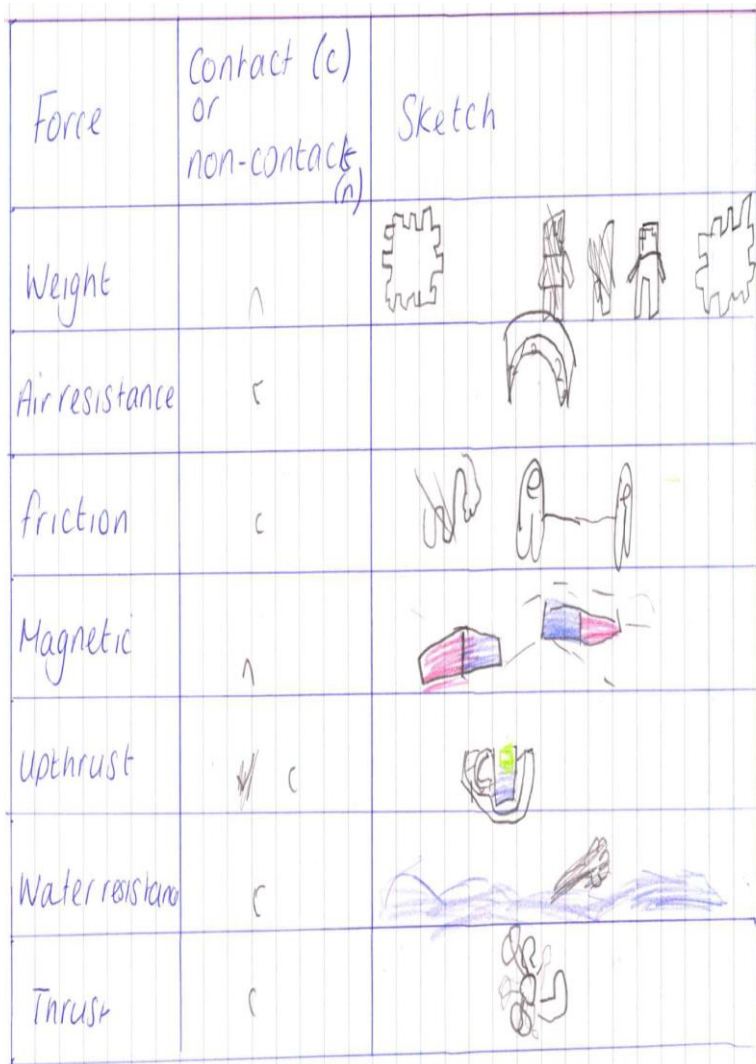 Force
Contact (c)
or
non-contact
(n)
Sketch
Weight
n
Air resistance
c
friction
c
Magnetic
n
Upthrust
c
Water resistanc
c
Thrust
c